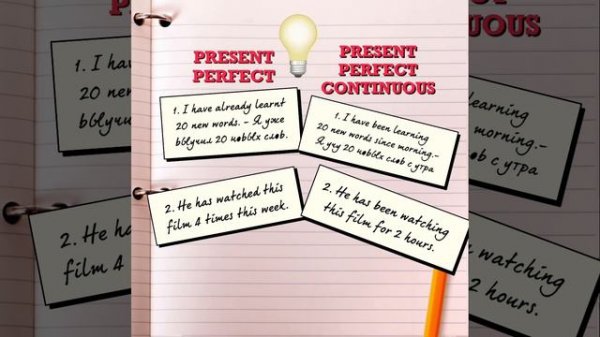 PRESENT
PERFECT
PRESENT
PERFECT
CONTINUOUS
1. I have already learnt
20 new words. - Я уже
выучил 20 новых слов.
1. I have been learning
20 new words since morning.-
Я учу 20 новых слов с утра
2. He has watched this
film 4 times this week.
2. He has been watching
this film for 2 hours.
1. I ha
20 new
выучи
2. He ha
film 4
OUS
learning
morning.-
в с утра
watching
2 hours.